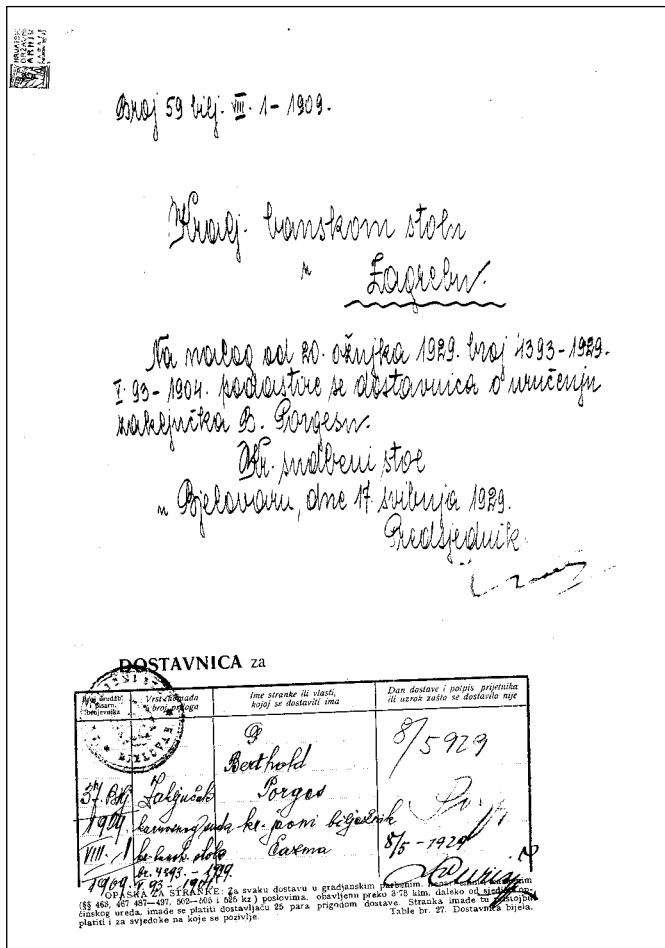 HRVATSKI
DRŽAVNI
ARHIV
ZAGREB
Broj 59 bilj. VIII. 1 - 1909.
Kralj. banskom stolu
u
Zagrebu.
Na nalog od 20. ožujka 1929. broj 4393-1929.
I. 93-1904. podastire se dostavnica o uručenju
zaključka B. Porgesu.
Kr. sudbeni stol
u Bjelovaru, dne 17. svibnja 1929.
Predsjednik
DOSTAVNICA za
Broj urudžb. i pisarn. brojevnika
Vrst komada i broj priloga
Ime stranke ili vlasti, kojoj se dostaviti ima
Dan dostave i potpis prijetnika ili uzrok zašto se dostavilo nije
G
Berthold
Porges
kr. javni bilježnik
Čazma
8/5 929
37. Bilj
1929.
VIII. 1
1909
Zaključak
kr. bansk. stola
br. 4393. - 1929.
I. 93 - 1904.
8/5 - 1929
OPASKA ZA STRANKE: Za svaku dostavu u gradjanskim parbenim,
(§§ 465, 467 487—497, 502—505 i 525 kz) poslovima, obavljenu preko 3·78 klm. daleko od sjedišta op-
ćinskog ureda, imade se platiti dostavljaču 25 para prigodom dostave. Stranka imade tu pristojbu
platiti i za svjedoke na koje se pozivlje.
Table br. 27. Dostavnica bijela.